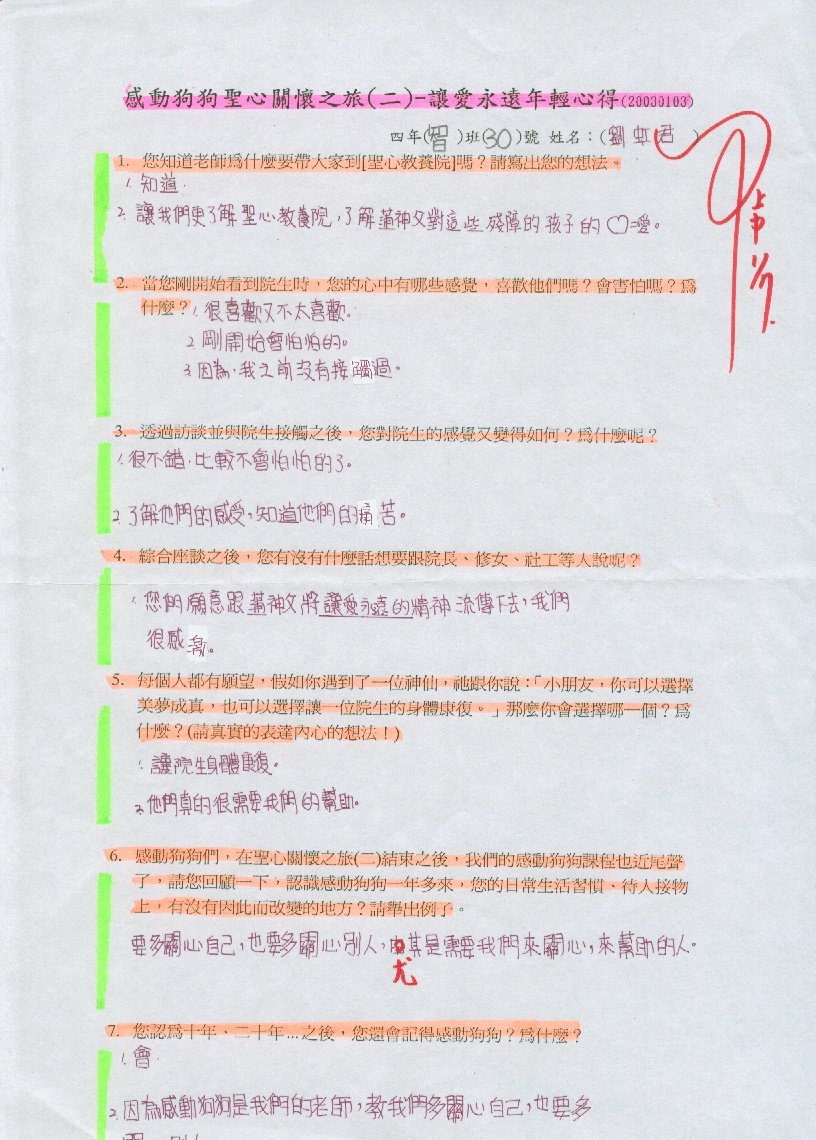 感動狗狗聖心關懷之旅(二)-讓愛永遠年輕心得(20030103)
四年(智)班(30)號 姓名:(劉虹君)
1. 您知道老師為什麼要帶大家到[聖心教養院]嗎?請寫出您的想法。
1.知道.
2. 讓我們更了解聖心教養院,了解蒲神父對這些殘障的孩子的♡=愛。
2. 當您剛開始看到院生時,您的心中有哪些感覺,喜歡他們嗎?會害怕嗎?為
什麼?1.很喜歡又不太喜歡.
2.剛開始會怕怕的。
3.因為,我之前沒有接觸過。
3. 透過訪談並與院生接觸之後,您對院生的感覺又變得如何?為什麼呢?
1.很不錯.比較不會怕怕的了。
2.了解他們的感受,知道他們的痛苦。
4. 綜合座談之後,您有沒有什麼話想要跟院長、修女、社工等人說呢?
1.您們願意跟蒲神父將讓愛永遠的精神流傳下去,我們
很感激。
5. 每個人都有願望,假如你遇到了一位神仙,祂跟你說:「小朋友,你可以選擇
美夢成真,也可以選擇讓一位院生的身體康復。」那麼你會選擇哪一個?為
什麼?(請真實的表達內心的想法!)
1.讓院生身體康復。
2.他們真的很需要我們的幫助。
6. 感動狗狗們,在聖心關懷之旅(二)結束之後,我們的感動狗狗課程也近尾聲
了,請您回顧一下,認識感動狗狗一年多來,您的日常生活習慣、待人接物
上,有沒有因此而改變的地方?請舉出例子。
要多關心自己,也要多關心別人,由其是需要我們來關心,來幫助的人。
尤
7. 您認為十年、二十年...之後,您還會記得感動狗狗?為什麼?
1.會.
2.因為感動狗狗是我們的老師,教我們多關心自己,也要多